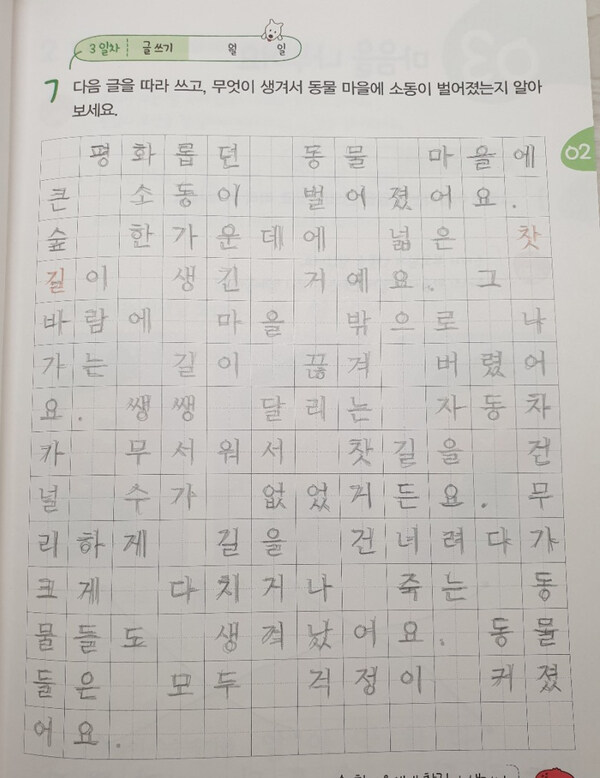 3일차 글쓰기 월 일
7 다음 글을 따라 쓰고, 무엇이 생겨서 동물 마을에 소동이 벌어졌는지 알아
보세요.
02
평화롭던 동물 마을에
큰 소동이 벌어졌어요.
숲 한가운데에 넓은 찻
길이 생긴 거예요. 그
바람에 마을 밖으로 나
가는 길이 끊겨 버렸어
요. 쌩쌩 달리는 자동차
가 무서워서 찻길을 건
널 수가 없었거든요. 무
리하게 길을 건너려다가
크게 다치거나 죽는 동
물들도 생겨났어요. 동물
들은 모두 걱정이 커졌
어요.